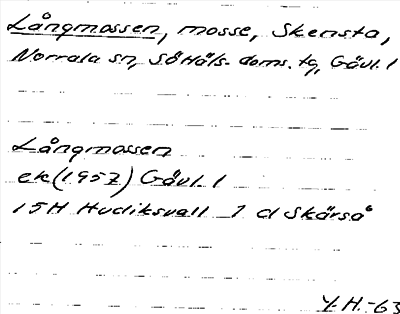 Långmossen, mosse, Skensta,
Norrala sn, SöHäls. doms. tg, Gävl. l
Långmossen
ek (1957) Gävl. l
15H Hudiksvall 1 d Skärså
Y.H.-63